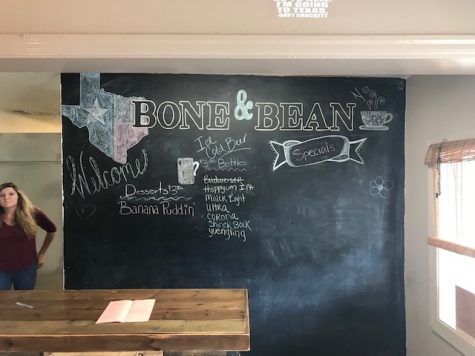 I'M GOING
TO TEXAS.
-DAVY CROCKETT-
BONE & BEAN
Welcome
Ice
Cold Beer
Bottles
Specials
Desserts
Banana Puddin'
Budweiser
Happy IPA
Miller Light
Ultra
Corona
Shiner Bock
yuengling